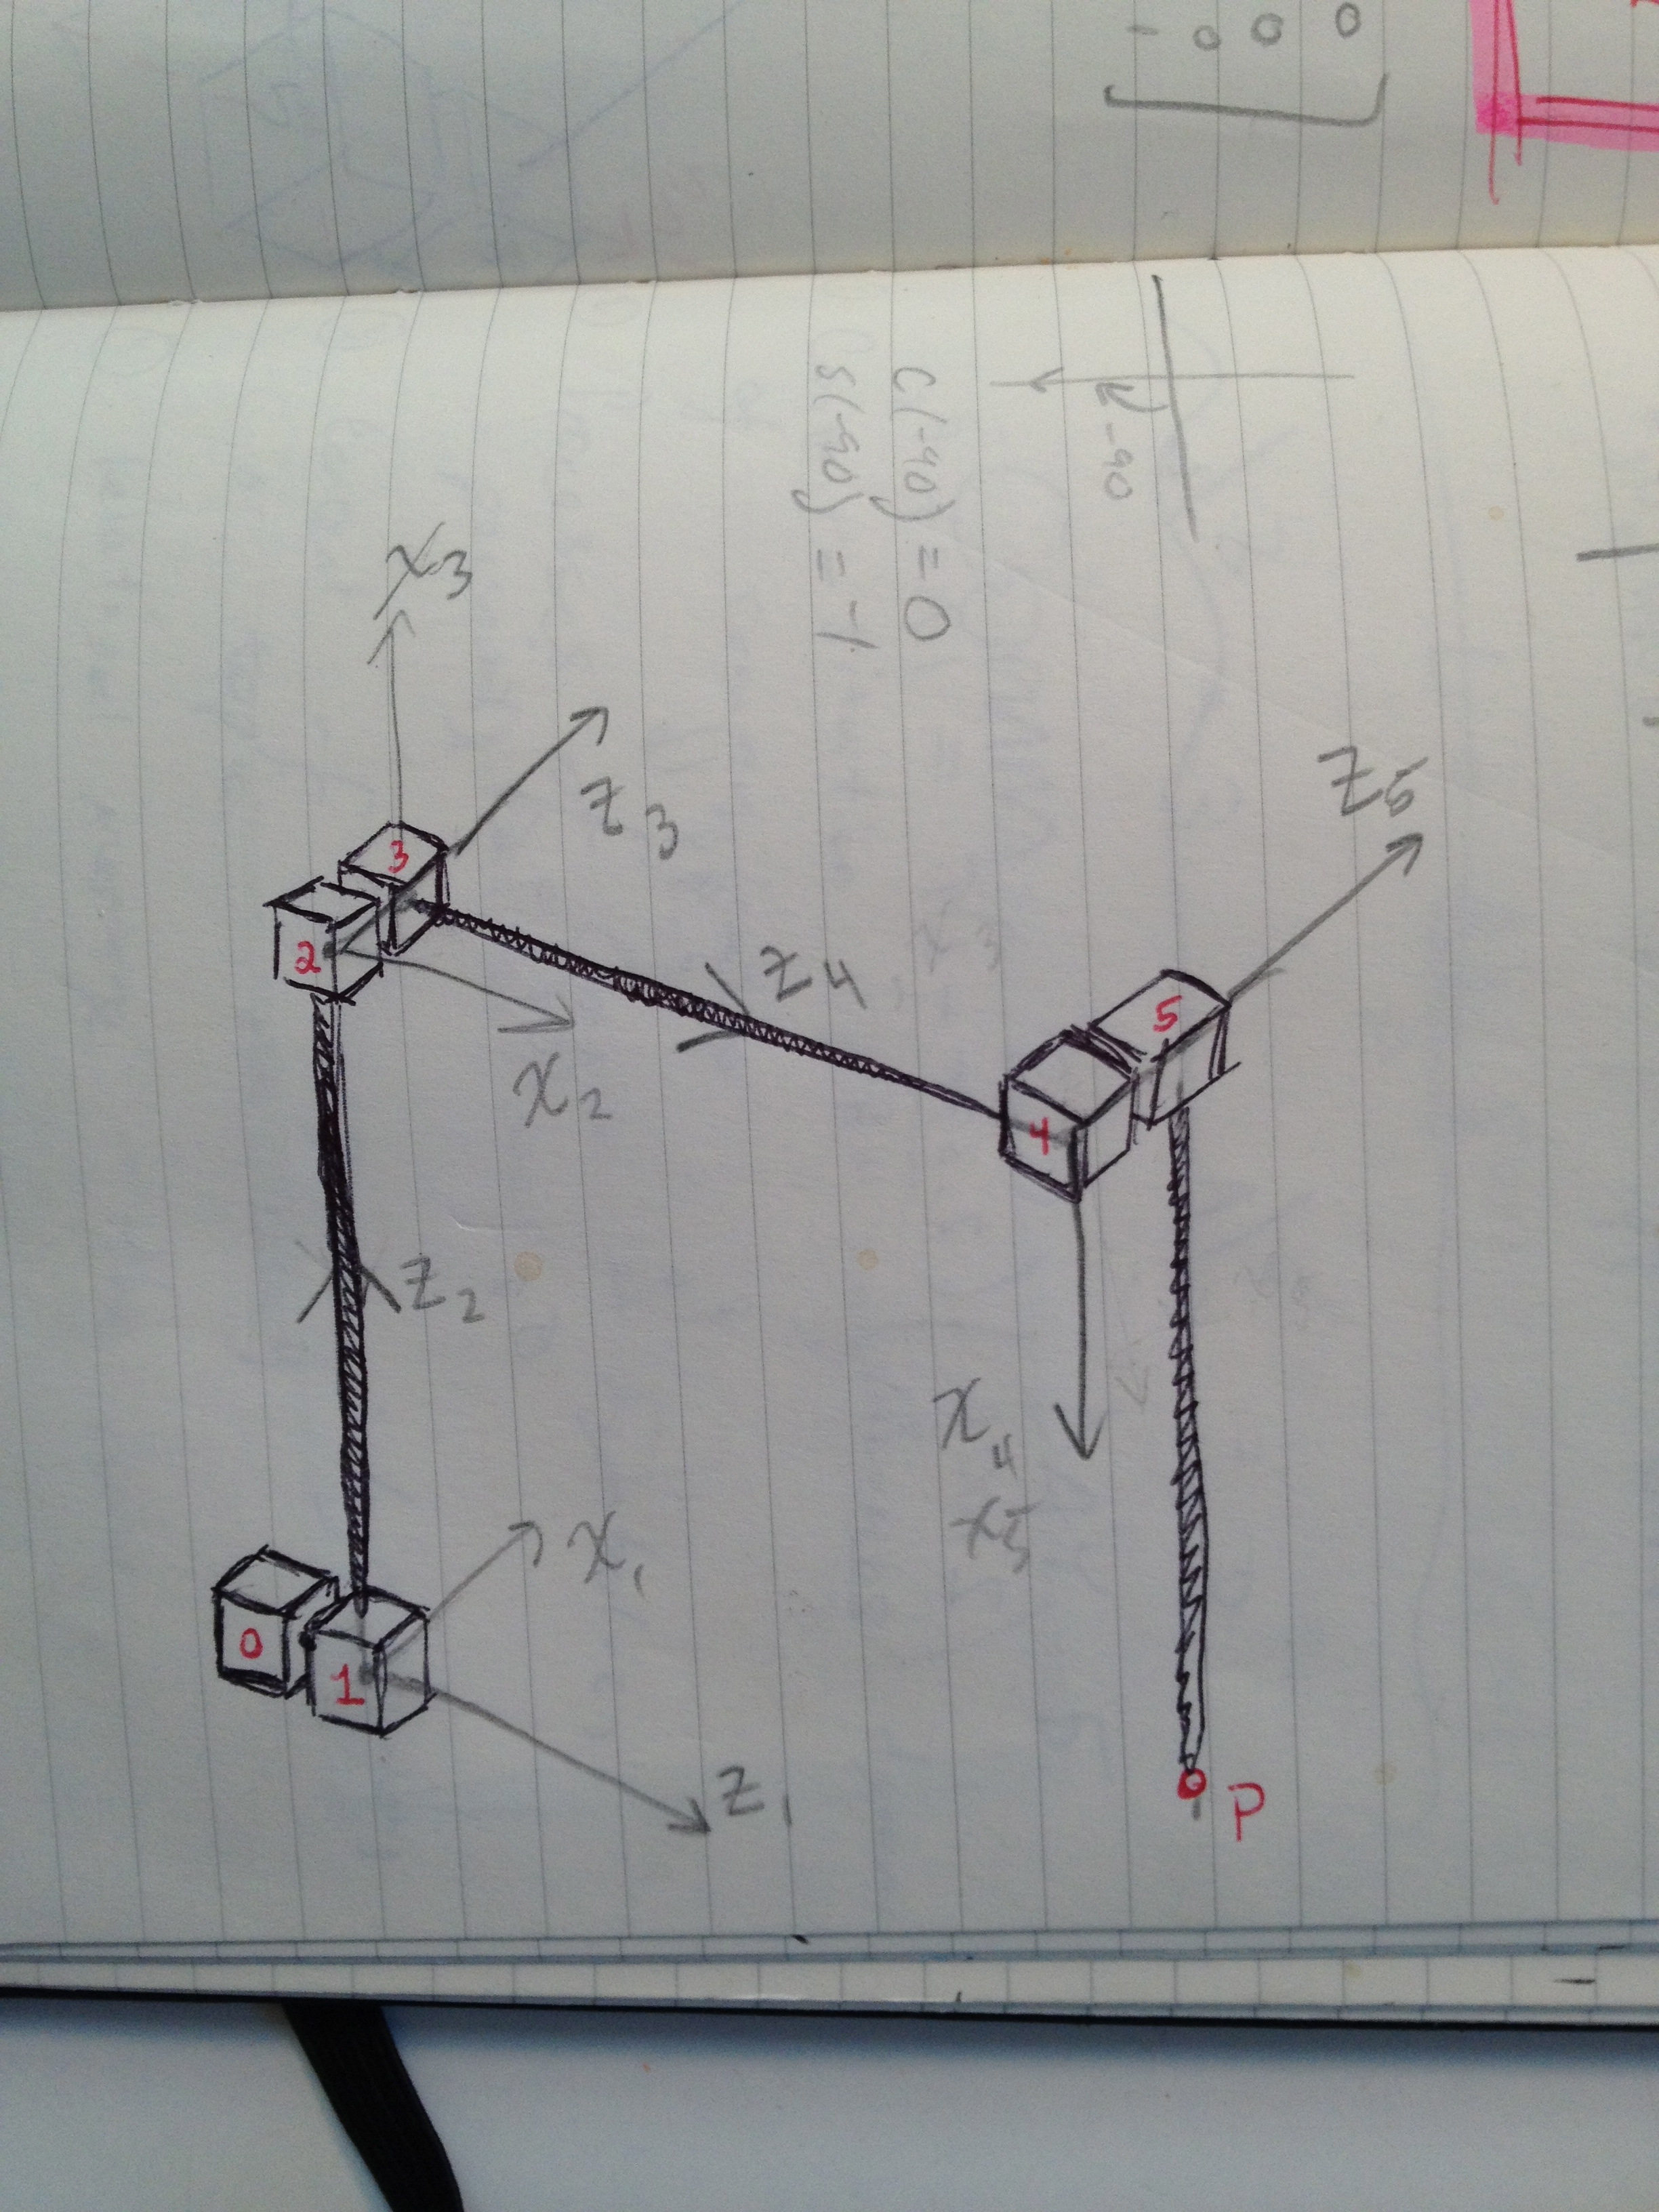 - 0 0 0
-90
C(-90) = 0
S(-90) = -1
x3
z3
z5
3
2
z4
5
x2
4
z2
x4
x5
x1
0
1
z1
P